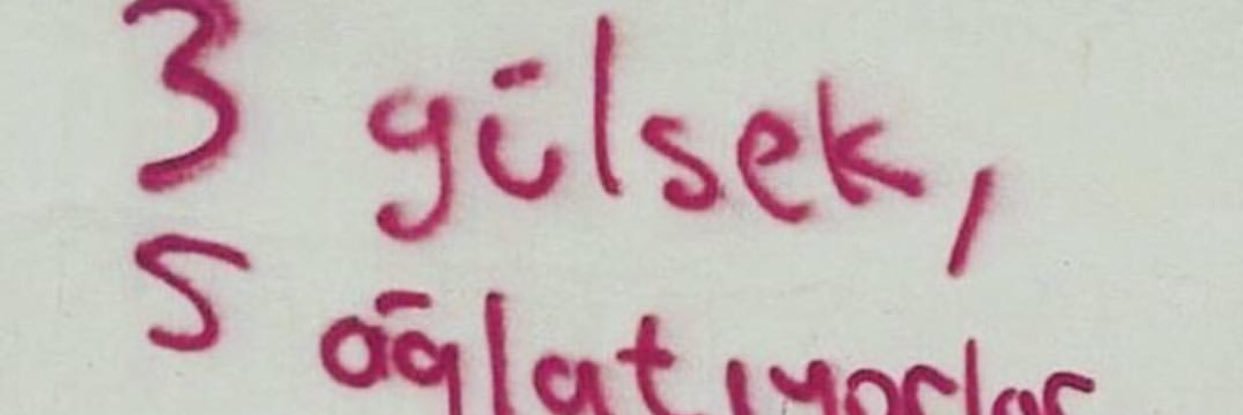 3 gülsek,
5 ağlatıyorlar